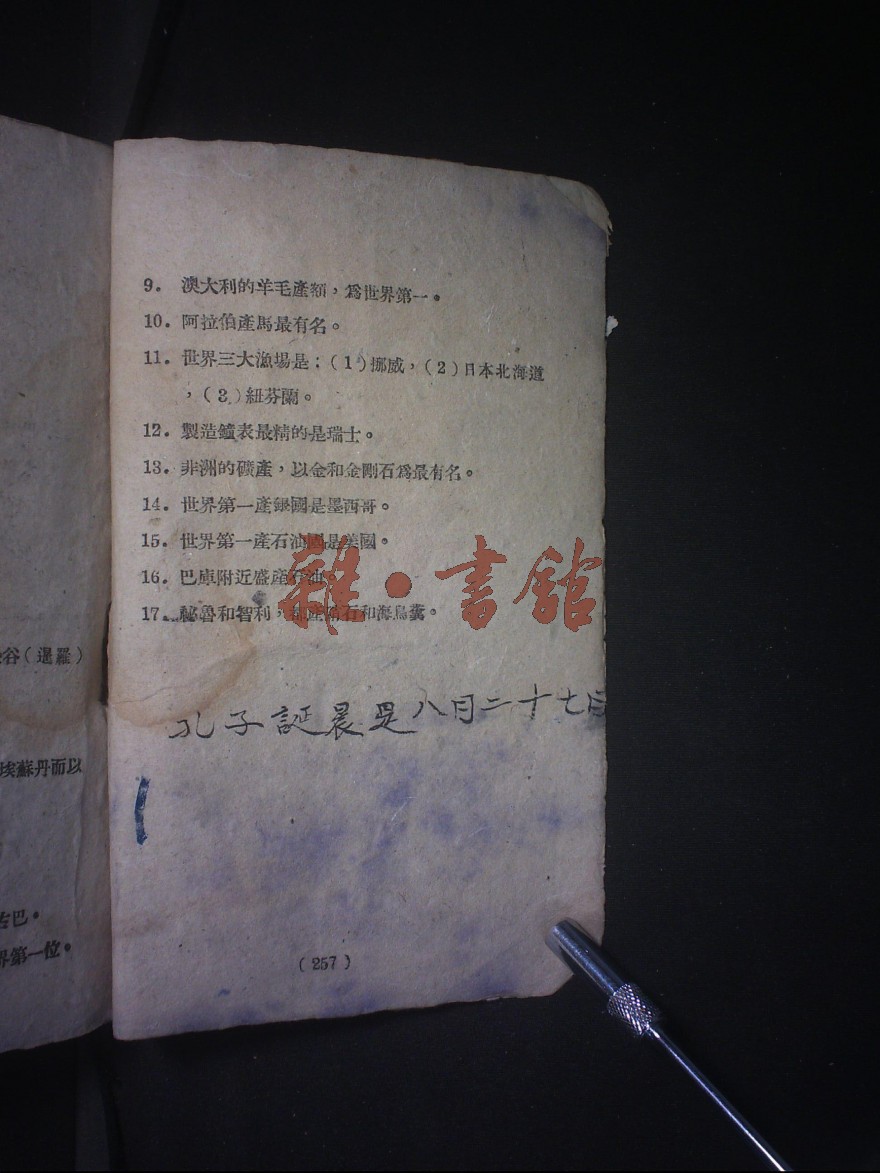 谷（暹羅）
埃蘇丹而以
古巴。
界第一位。
9. 澳大利的羊毛產額，爲世界第一。
10. 阿拉伯產馬最有名。
11. 世界三大漁場是；（1）挪威，（2）日本北海道
，（3）紐芬蘭。
12. 製造鐘表最精的是瑞士。
13. 非洲的礦產，以金和金剛石爲最有名。
14. 世界第一產銀國是墨西哥。
15. 世界第一產石油國是美國。
16. 巴庫附近盛產石油。
17. 秘魯和智利，都產硝石和海鳥糞。
雜·書館
孔子誕晨是八月二十七日
（257）